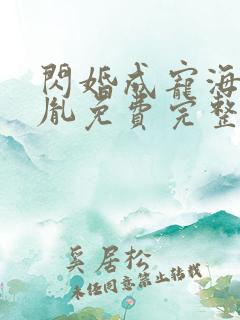 閃婚成寵海
胤免費完整
奚居松
未任同意禁止转载